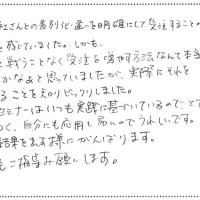 社さんとの差別化・違いを明確にして受注することの
を感じていました。しかも、
と戦うことなく受注を増やす方法なんて本当
かなあと思っていましたが、実際にそれを
ることを知りビックリしました。
セミナーはいつも実践に基づいているので、とて
く、自分にも応用し易いのでうれしいです。
結果を出す様にがんばります。
もご指導お願いします。